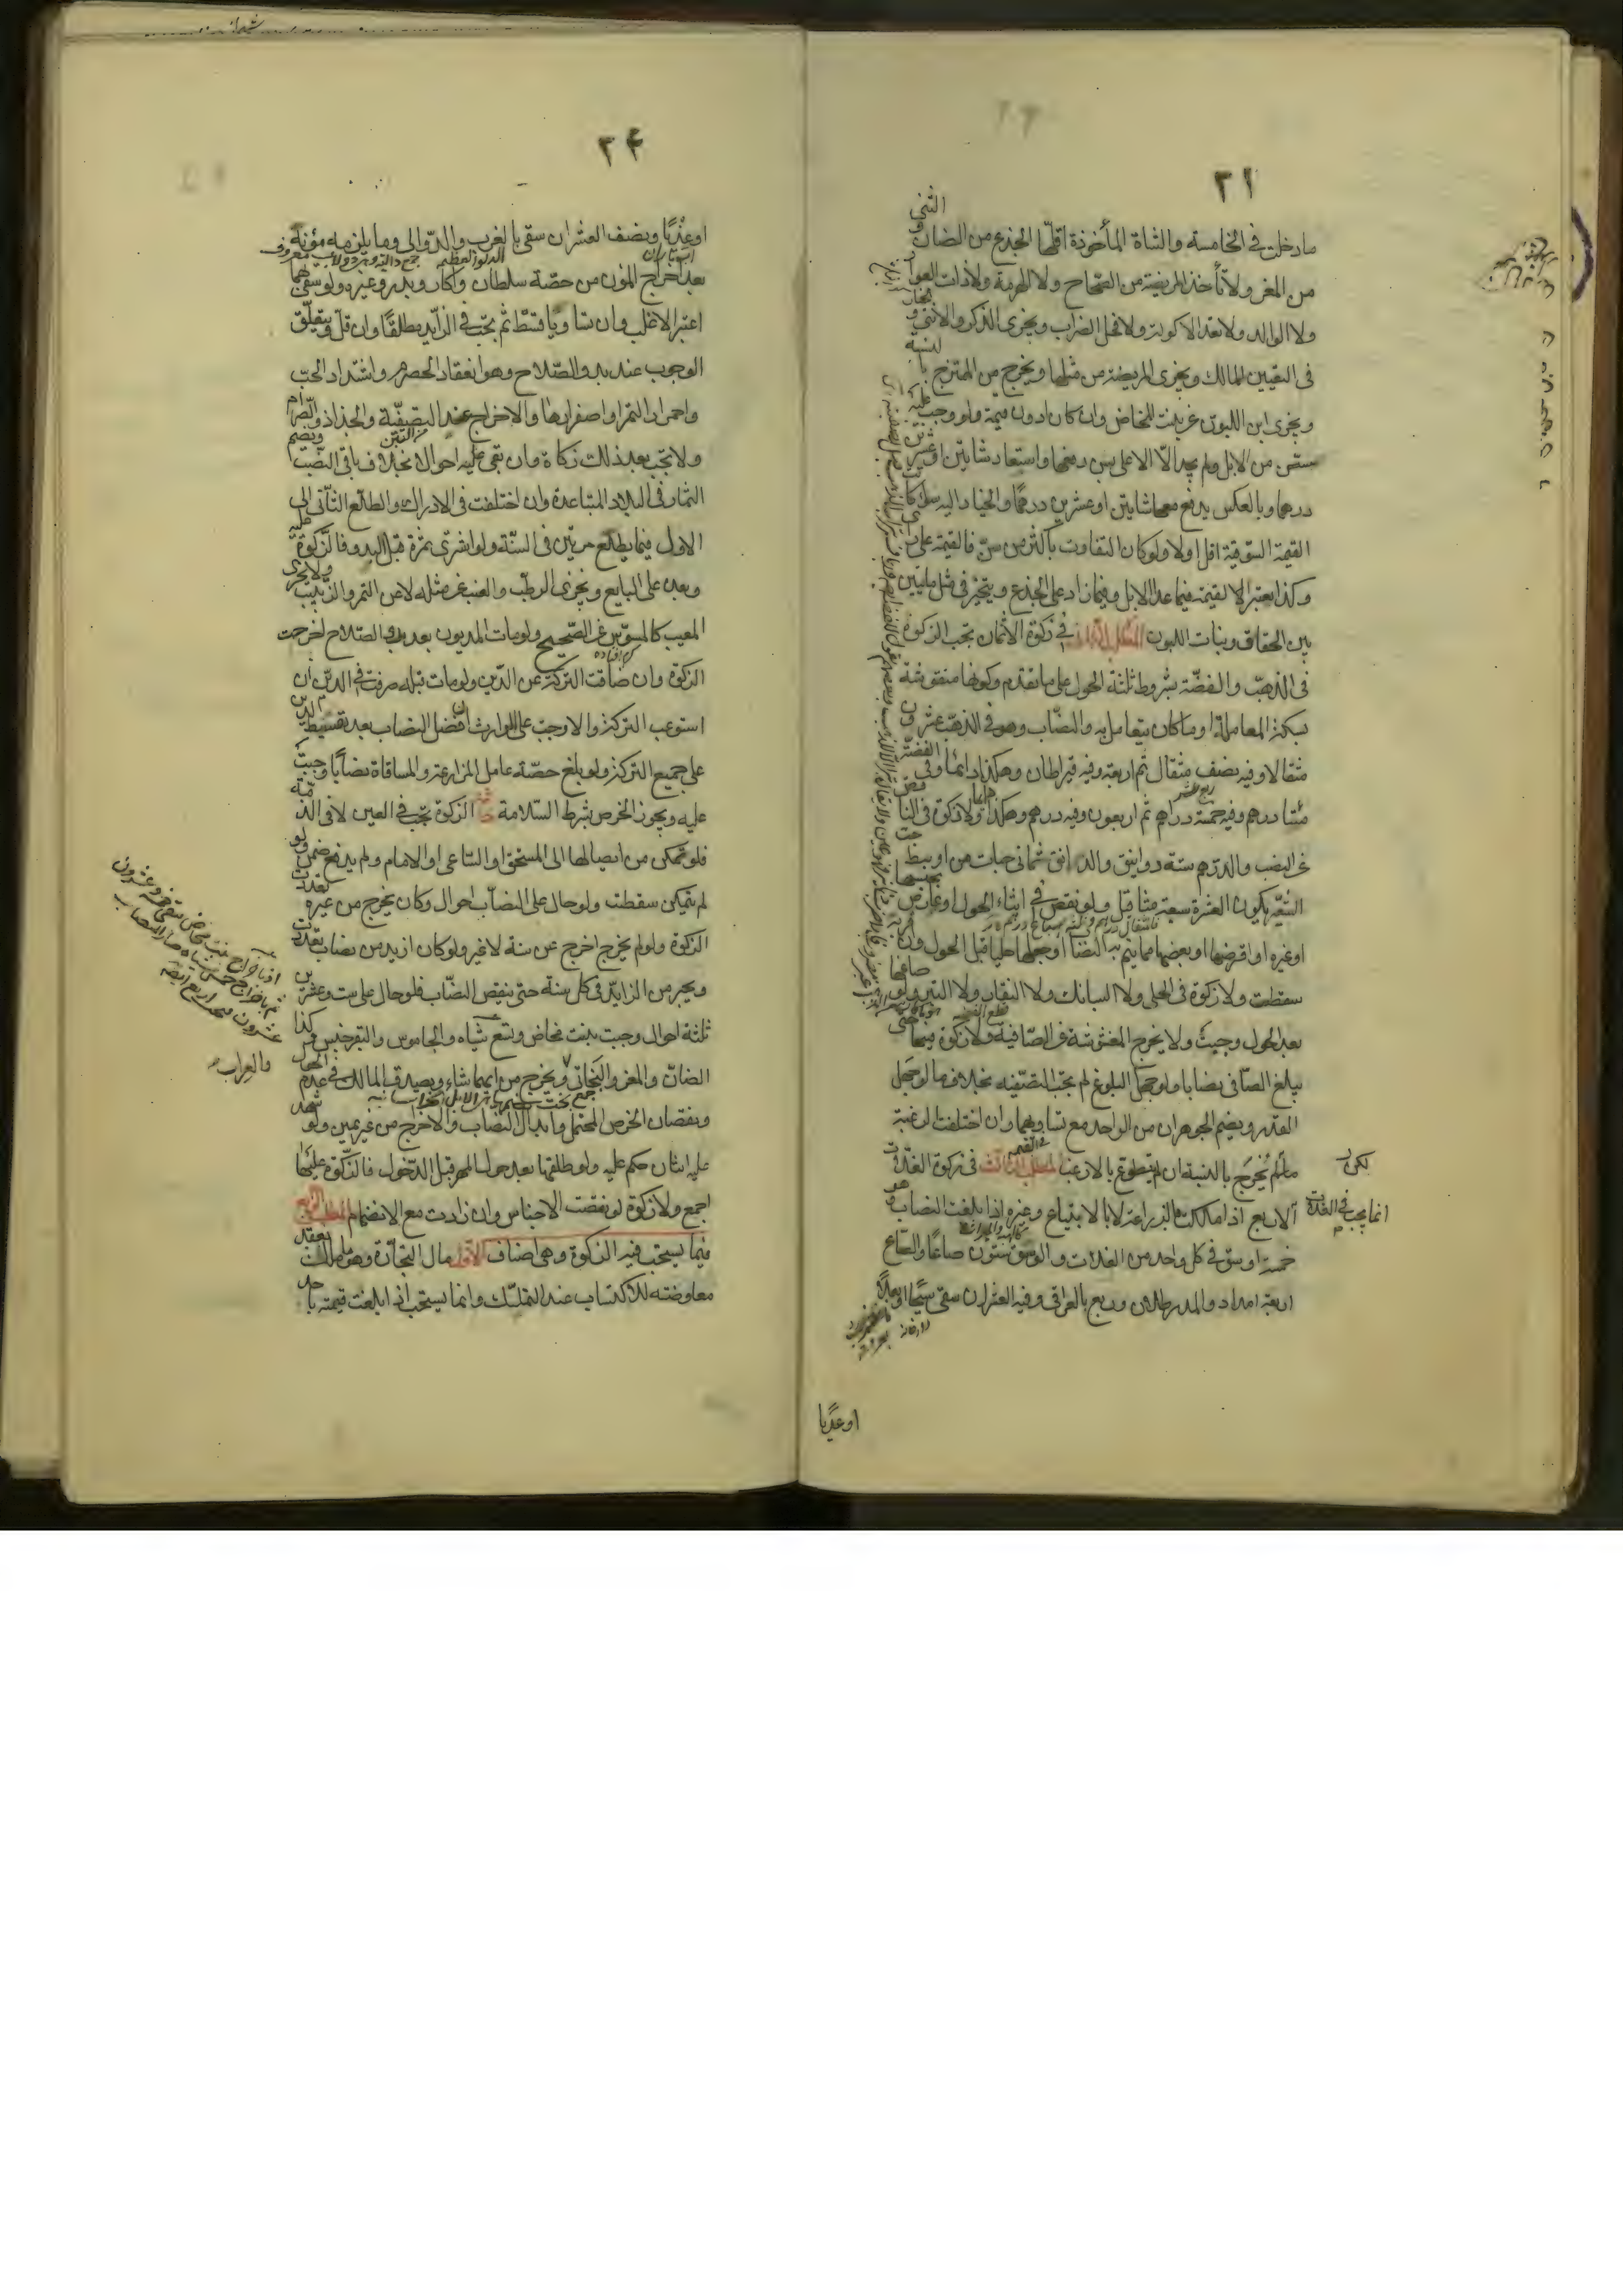 ٢١
ما دخلت في الخامسة والشاة المأخوذة اقلّها الجذع من الضان و الثني
من المعز ولا تأخذ المريضة من الصحاح ولا الهرمة ولا ذات العوار
ولا الوالد ولا تعد الاكولة ولا فحل الضراب ويجزى الذكر والانثى و
في التعيين للمالك ويجزى المريضة من مثلها ويخرج من الممتزج بالنسبة
ويجزى ابن اللبون عن بنت المخاض وان كان ادون قيمة ولو وجب عليه
سن من الابل ولم يجد الا الاعلى بسن دفعها واستعاد شاتين او عشرين
درهما وبالعكس يدفع معها شاتين او عشرين درهمًا والخيار اليه سواء كانت
القيمة السوقية اقل اولا ولو كان التفاوت باكثر من سن فالقيمة على
وكذا يعتبر القيمة فيما عدا الابل وفيما زاد على الجذع و يتخير في مثل مايتين
بين الحقاق وبنات اللبون المطلب الثاني في زكوة الاثمان تجب الزكوة
في الذهب والفضة بشروط ثلثة الحول على ما تقدم وكونها منقوشة
بسكة المعاملة او ما كان يتعامل به والنصاب وهو في الذهب عشرون
مثقالا وفيه نصف مثقال ثم اربعة وفيه قيراطان وهكذا دائما وفي الفضة
مئتا درهم وفيه خمسة دراهم ثم اربعون وفيه درهم وهكذا ولا زكوة في الناقص
عن النصب والدرهم ستة دوانيق والدانق ثماني حبات من اوسط حب
الشعير يكون العشرة سبعة مثاقيل ولو نقص في اثناء الحول او عارض بجنسها
او غيره او اقرضها او بعضها مما يتم به النصاب او جعلها حليا قبل الحول
سقطت ولا زكوة في الحلى ولا السبائك ولا النقار ولا التبر ولو صاغها
بعد الحول وجبت ولا يخرج المغشوشة عن الصافية ولا زكوة فيها حتى
يبلغ الصافي نصابا ولو جهل البلوغ لم تجب التصفية بخلاف ما لو جهل
القدر ويضم الجوهران من الواحد مع تساويهما وان اختلفت الرغبة
لكن
ما لم يخرج بالنسبة ان لم يتطوع بالارغب المطلب الثالث في زكوة الغلات
انما يجب في الغلات
الاربع اذا ملكت بالزراعة لا بالابتياع وغيره اذا بلغت النصاب وهو
خمسة اوسق في كل واحد من الغلات والوسق ستون صاعًا والصاع
اربعة امداد والمد رطلان وربع بالعراقي وفيه العشر ان سقى سيحًا او بعلاً
او عذيا
٢٤
او عذيًا ونصف العشر ان سقى بالغرب والدوالي وما يلزمه مؤنة
بعد اخراج المؤن من حصة سلطان واكار وبذر وغيره ولو سقى بهما
اعتبر الاغلب وان تساويا قسط ثم تجب في الزايد مطلقًا وان قل ويتعلق
الوجوب عند بدو الصلاح وهو انعقاد الحصرم واشتداد الحب
واحمرار الثمر او اصفرارها والاخراج عند التصفية والجذاذ والصرام
ولا تجب بعد ذلك زكاة وان بقى عليه احوال بخلاف باقى النصب ويضم
الثمار في البلاد المتباعدة وان اختلفت في الادراك والطلع الثاني الى
الاول فيما يطلع مرتين في السنة ولو اشترى ثمرة قبل البدو فالزكوة عليه
وبعده على البايع ويجزى الرطب والعنب عن مثله لا عن التمر والزبيب ولا يجزى
المعيب كالمسوس عن الصحيح ولو مات المديون بعد بدو الصلاح اخرجت
الزكوة وان ضاقت التركة عن الدين ولو مات قبله صرفت في الدين ان
استوعب التركة والا وجب على الوارث ان فضل النصاب بعد تقسيط الدين
على جميع التركة ولو بلغ حصة عامل المزارعة والمساقاة نصابًا وجبت
عليه ويجوز الخرص بشرط السلامة الزكوة تجب في العين لا في الذمة
فلو تمكن من ايصالها الى المستحق او الساعي او الامام ولم يدفع ضمن ولو
لم يتمكن سقطت ولو حال على النصاب احوال وكان يخرج من غيره تعددت
الزكوة ولو لم يخرج اخرج عن سنة لا غير ولو كان ازيد من نصاب تعددت
ويجبر من الزايد في كل سنة حتى ينقص النصاب فلو حال على ست وعشرين
ثلثة احوال وجبت بنت مخاض وتسع شياه والجاموس والبقر جنس وكذا
والعراب
الضان والمعز والبخاتي ويخرج من ايهما شاء ويصدق المالك في عدم الحول
ونقصان الخرص المحتمل وابدال النصاب والاخراج من غير يمين ولو شهد
عليه اثنان حكم عليه ولو طلقها بعد حول المهر قبل الدخول فالزكوة عليها
اجمع ولا زكوة لو نقصت الاجناس وان زادت مع الانضمام المطلب الرابع
فيما يستحب فيه الزكوة وهي اصناف الاول مال التجارة وهو ما ملك بعقد
معاوضة للاكتساب عند التملك وانما يستحب اذا بلغت قيمته باحد